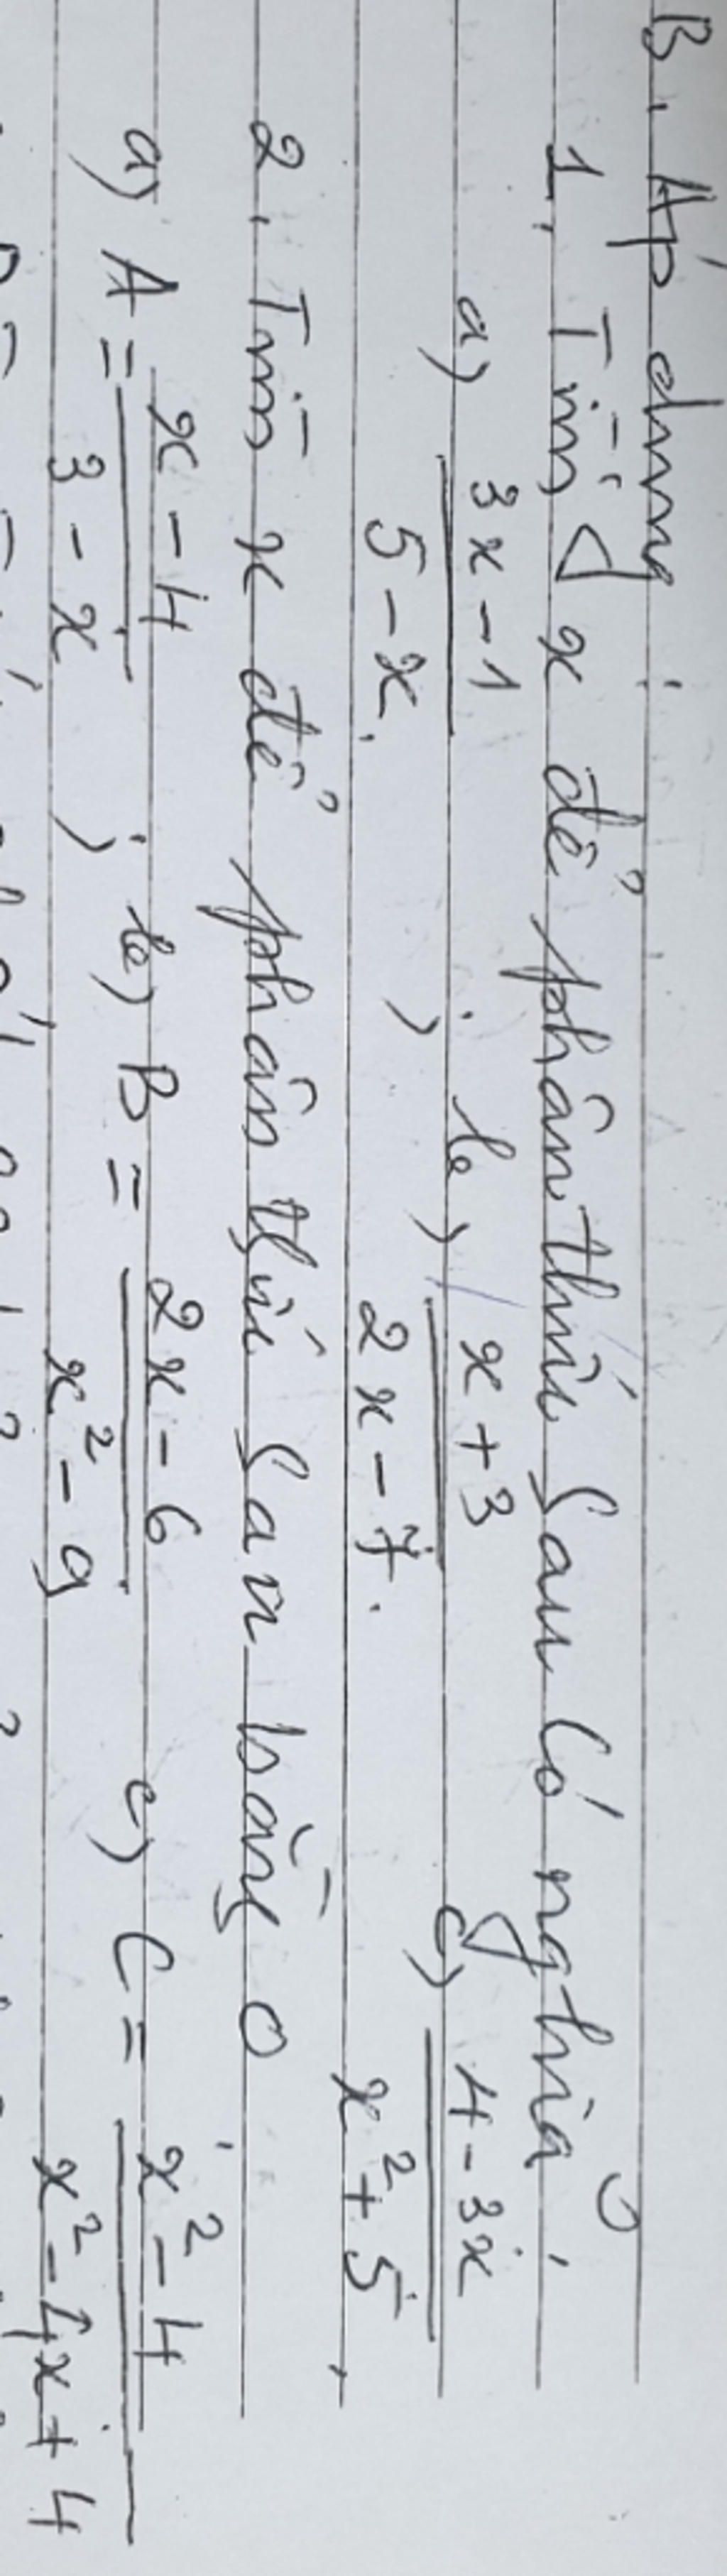 B. Áp dụng :
1. Tìm x để phân thức sau có nghĩa
a) \frac{3x-1}{5-x} ; b) \frac{x+3}{2x-7} . c) \frac{4-3x}{x^2+5}
2. Tìm x để phân thức sau bằng 0
a) A = \frac{x-4}{3-x} ; b) B = \frac{2x-6}{x^2-9} c) C = \frac{x^2-4}{x^2-4x+4}